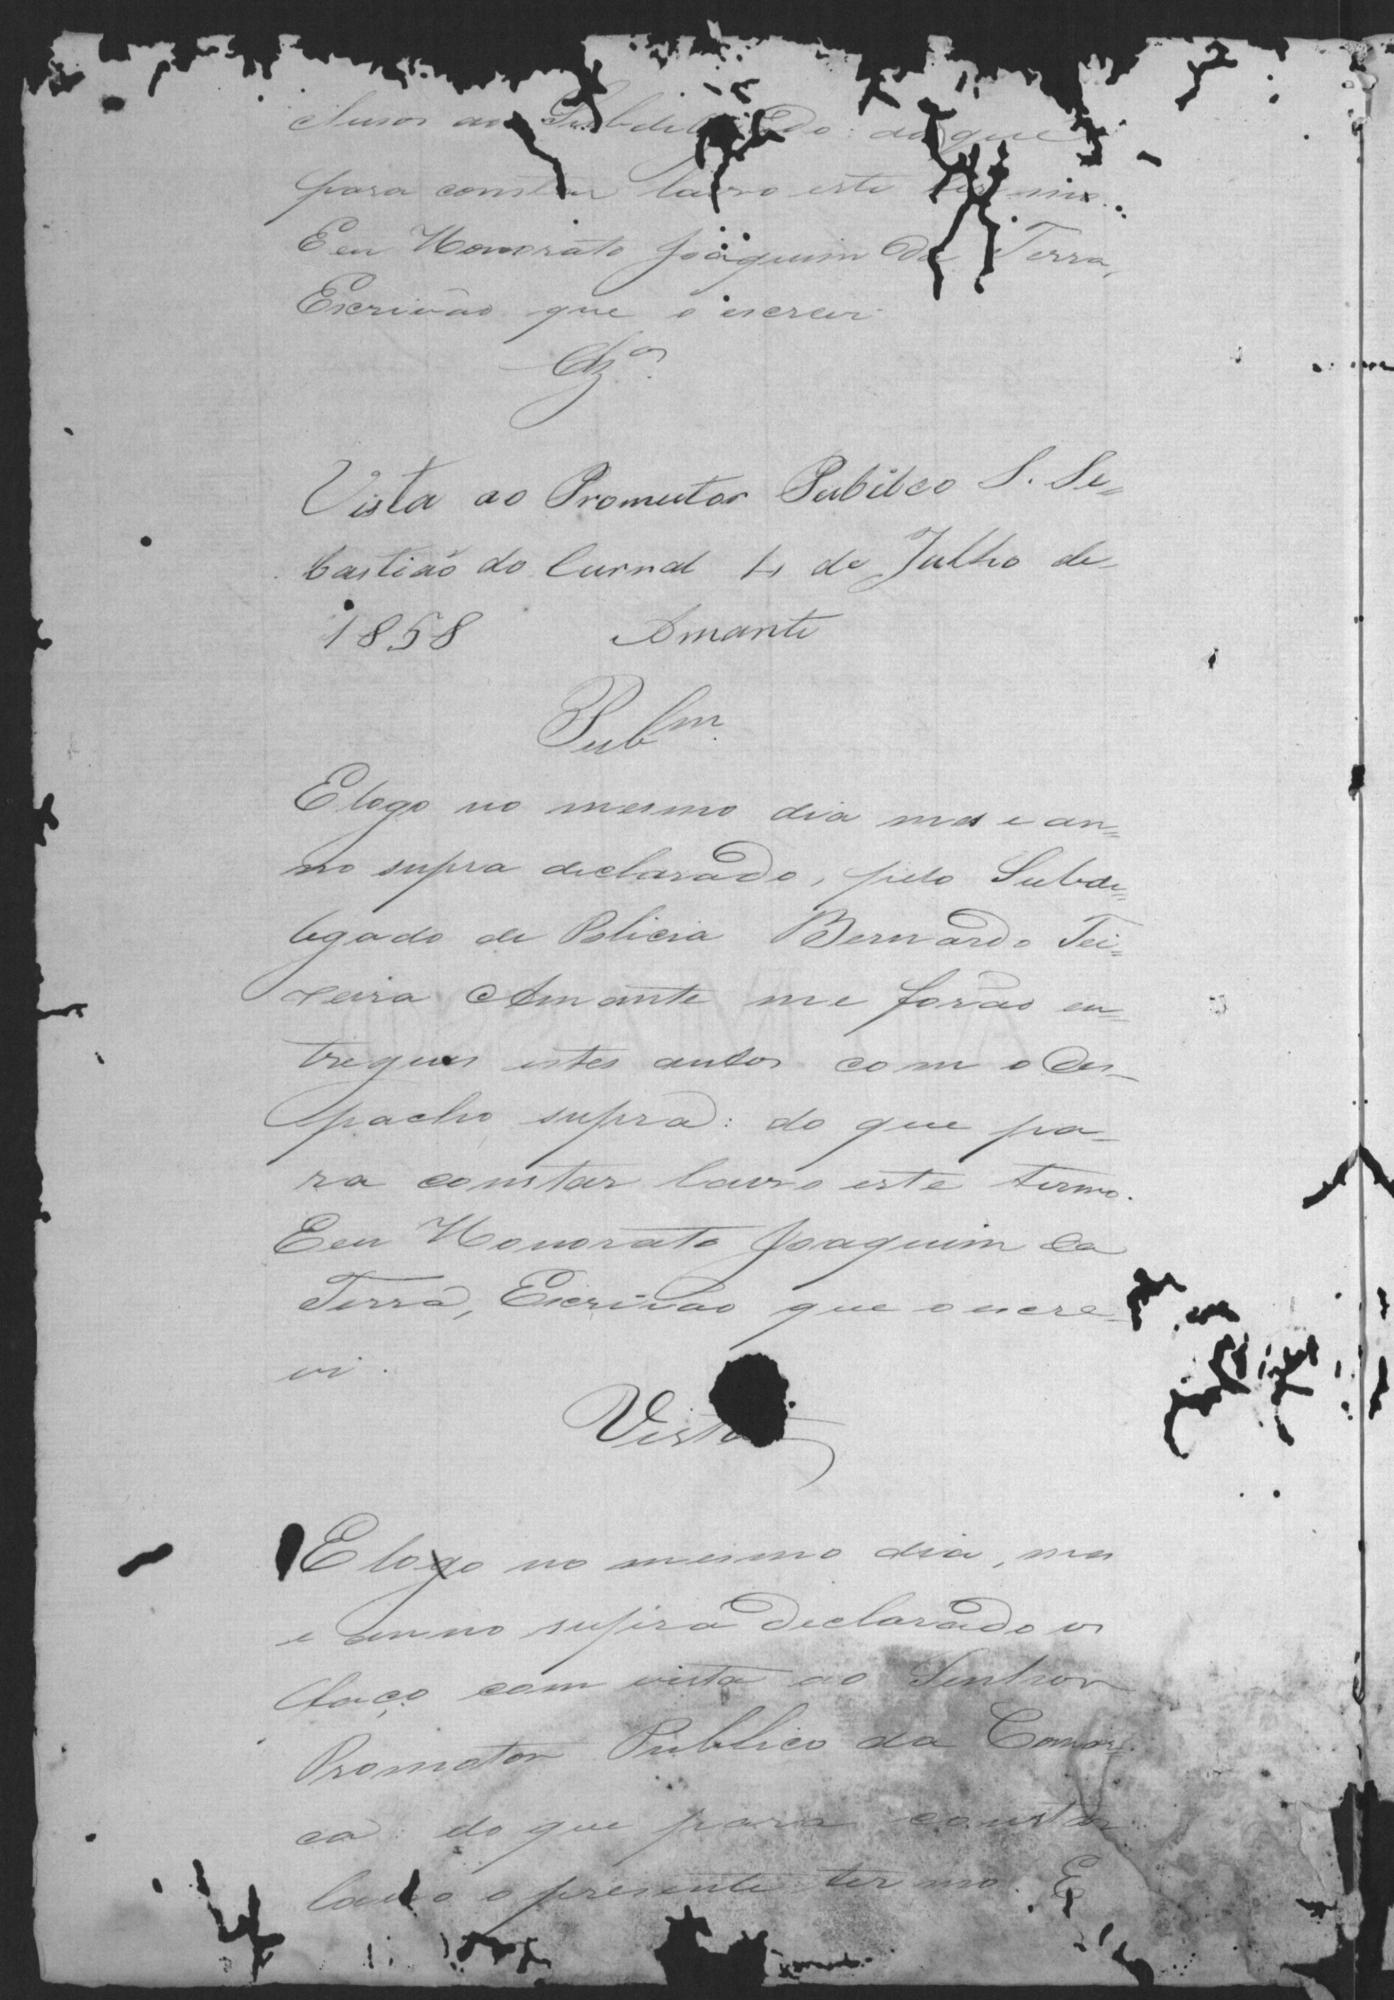 clusos ao Subdelegado: do que
para constar lavro este termo.
Eeu Honorato Joaquim da Terra,
Escrivão que o escrevi.
Clzos
Vista ao Promutor Pubilco S. Se=
bastiaõ do Curral 4 de Julho de
1858 Amante
Pubm.
E logo no mesmo dia mes e an=
no supra declarado, pelo Subde=
legado de Policia Bernardo Tei=
xeira Amante me forão en=
tregues estes autos com o Des-
pacho supra: do que pa-
ra constar lavro este termo.
Eeu Honorato Joaquim da
Terra, Escrivão que o escre-
vi.
Vista
E logo no mesmo dia, mes
e anno supra declarado os
faço com vista ao Senhor
Promotor Publico da Comar=
ca: do que para constar
lavro o presente termo. E